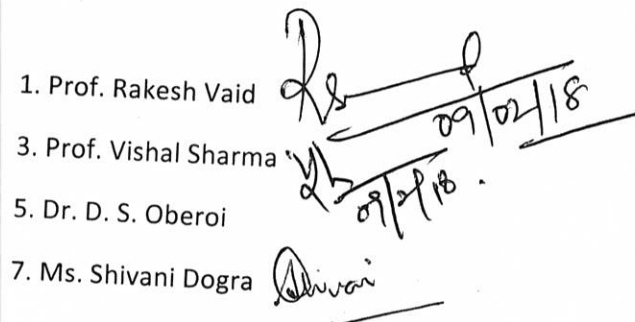 1. Prof. Rakesh Vaid
09/02/18
3. Prof. Vishal Sharma
09/2/18.
5. Dr. D. S. Oberoi
7. Ms. Shivani Dogra Shivani